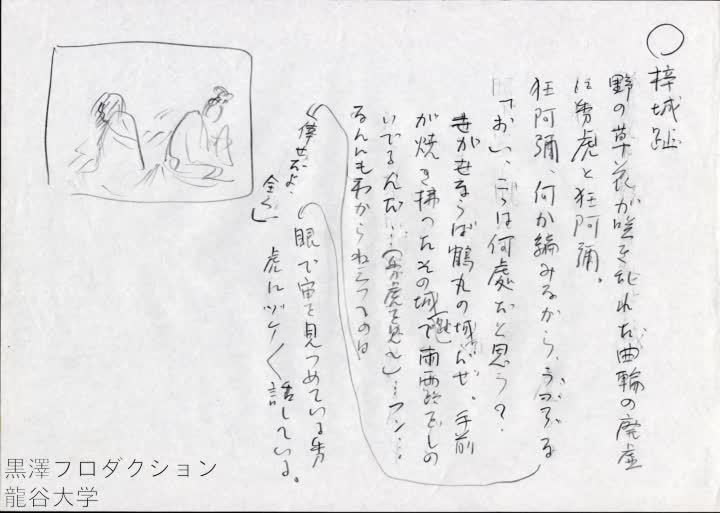 梓城趾
野の草花が咲き乱れた曲輪の廃虚
に秀虎と狂阿彌。
狂阿彌、何か編みながら、うそぶる
「おい、こゝは何處だと思う？
世が世ならば鶴丸の城だぜ。手前
が焼き拂ったその城趾で雨露をしの
いでるんだ‥‥(秀虎を見て)‥‥フン‥‥
るんもわからねえってのは
倖せだよ、
全く」
眼で宙を見つめている秀
虎にヅケ〱話している。
黒澤プロダクション
龍谷大学